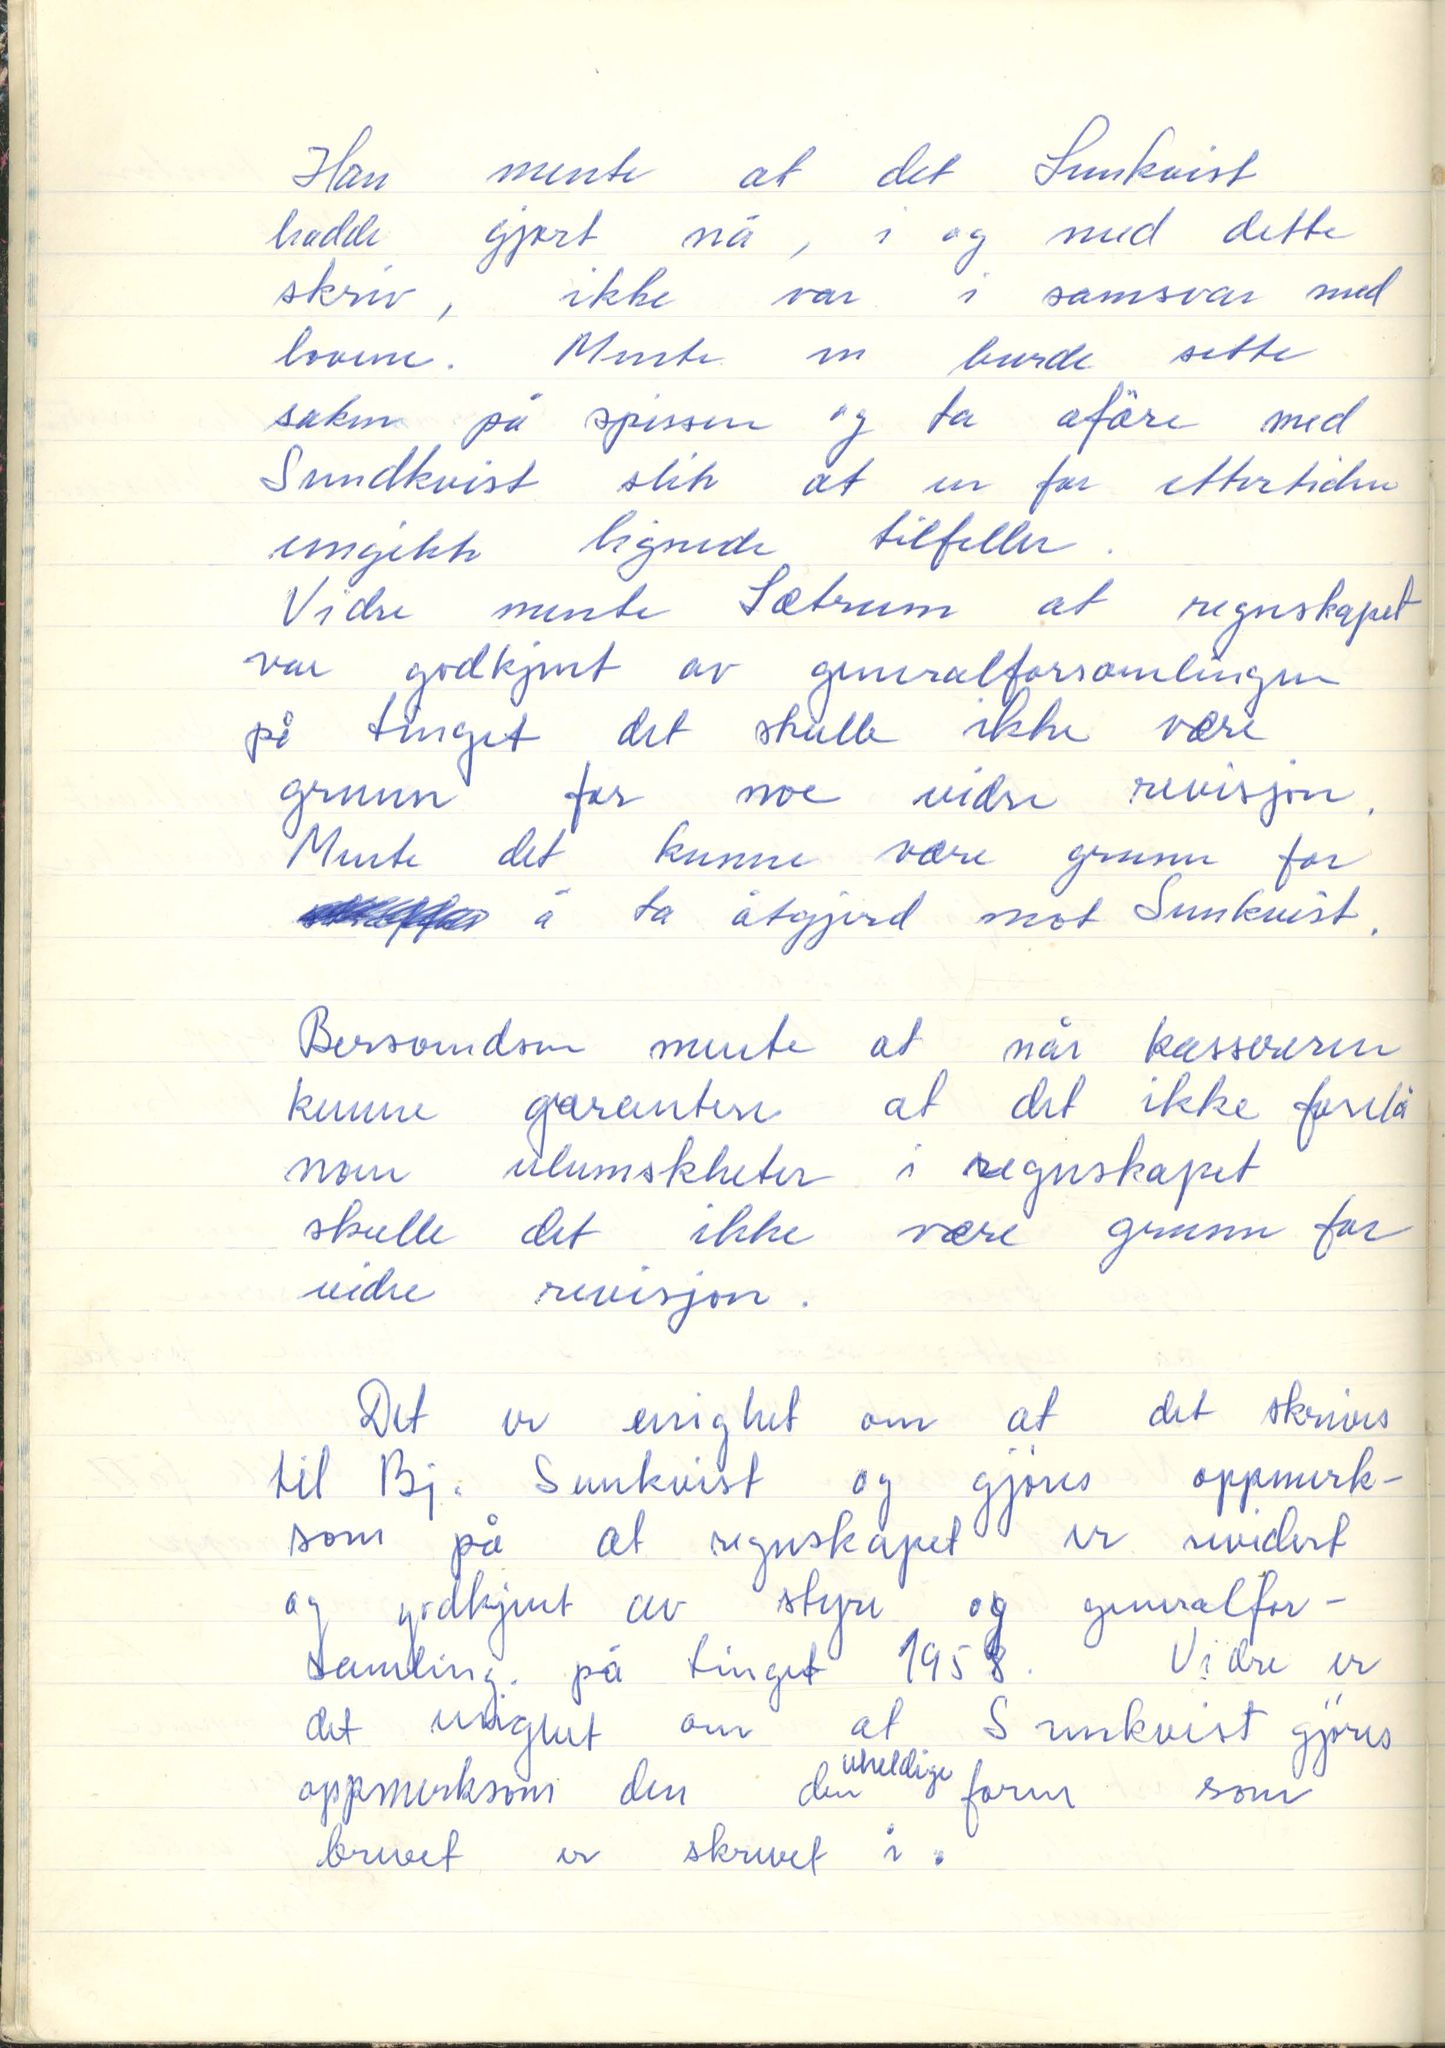 Han mente at det Sunkvist
hadde gjort nå, i og med dette
skriv, ikke var i samsvar med
lovene. Mente en burde sette
saken på spissen og ta aföre med
Sundkvist slik at en for ettertiden
ungikk lignede tilfeller.
Vidre mente Sætrum at regnskapet
var godkjent av generalforsamlingen
på tinget det skulle ikke være
grunn for noe vidre revisjon.
Mente det kunne være grunn for
å ta åtgjerd mot Sunkvist.
mente at når kassereren
kunne garantere at det ikke forelå
noen ulumskheter i regnskapet
skulle det ikke være grunn for
vidre revisjon.
Det er enighet om at det skrives
til Bj. Sunkvist og gjöres oppmerk-
som på at regnskapet er revidert
og godkjent av styre og generalfor-
samling. på tinget 1958. Vidre er
det enighet om at Sunkvist gjöres
oppmerksom den den uheldige form som
brevet er skrevet i.